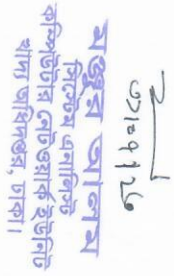 ৩১.০৭.১৬
মঞ্জুর আলম
সিস্টেম এনালিস্ট
কম্পিউটার নেটওয়ার্ক ইউনিট
খাদ্য অধিদপ্তর, ঢাকা।